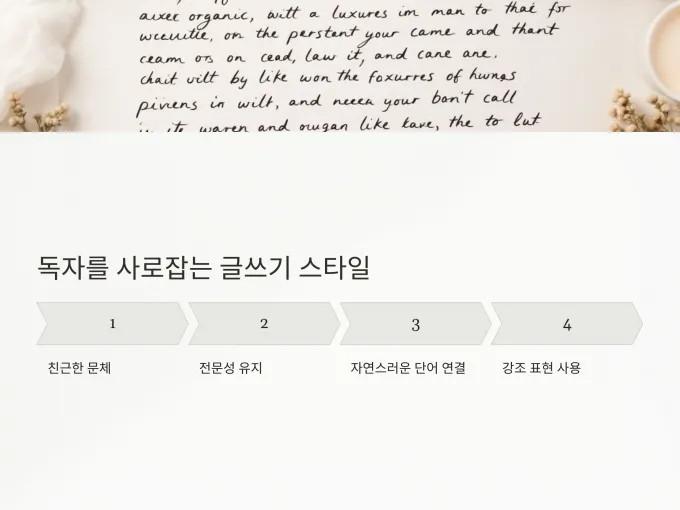 aixee organic, witt a luxures im man to that for
on the perstent your came and thant
ceam ors on cead, law it, and cane are.
chait vilt by like won the foxurres of hwngs
piviens in wilt, and neeen your bon't call
and owgan like kave, the to lut
독자를 사로잡는 글쓰기 스타일
1
2
3
4
친근한 문체
전문성 유지
자연스러운 단어 연결
강조 표현 사용